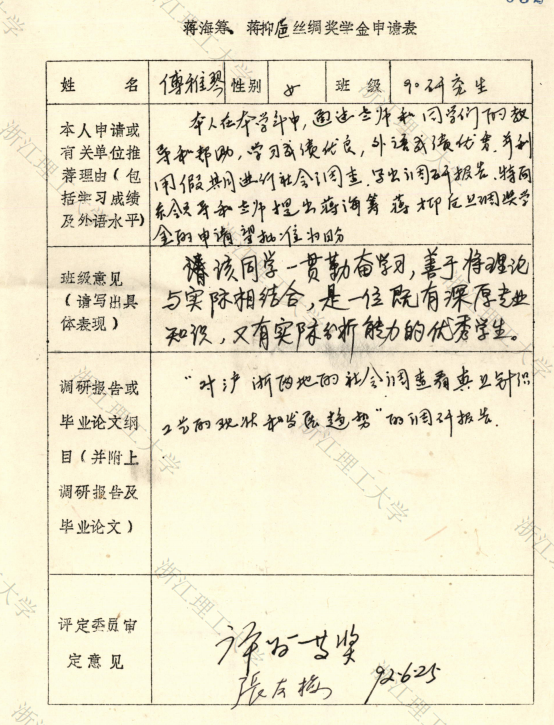 蒋海筹、蒋抑卮丝绸奖学金申请表
姓 名 傅雅琴 性别 女 班 级 90研究生
本人申请或有关单位推荐理由(包括学习成绩及外语水平)
本人在本学年中,通过老师和同学们的教
导和帮助,学习成绩优良,外语成绩优秀,并利
用假期间进行社会调查,写出调研报告.特向
系领导和老师提出蒋海筹 蒋抑卮丝绸奖学
金的申请望批准为盼
班级意见(请写出具体表现)
该同学一贯勤奋学习,善于将理论
与实际相结合,是一位既有深厚专业
知识,又有实际分析能力的优秀学生。
调研报告或毕业论文纲目(并附上调研报告及毕业论文)
"对沪 浙两地的社会调查看真丝针织
工艺的现状和发展趋势"的调研报告.
评定委员审定意见
评为 等奖
92.6.25
浙江理工大学